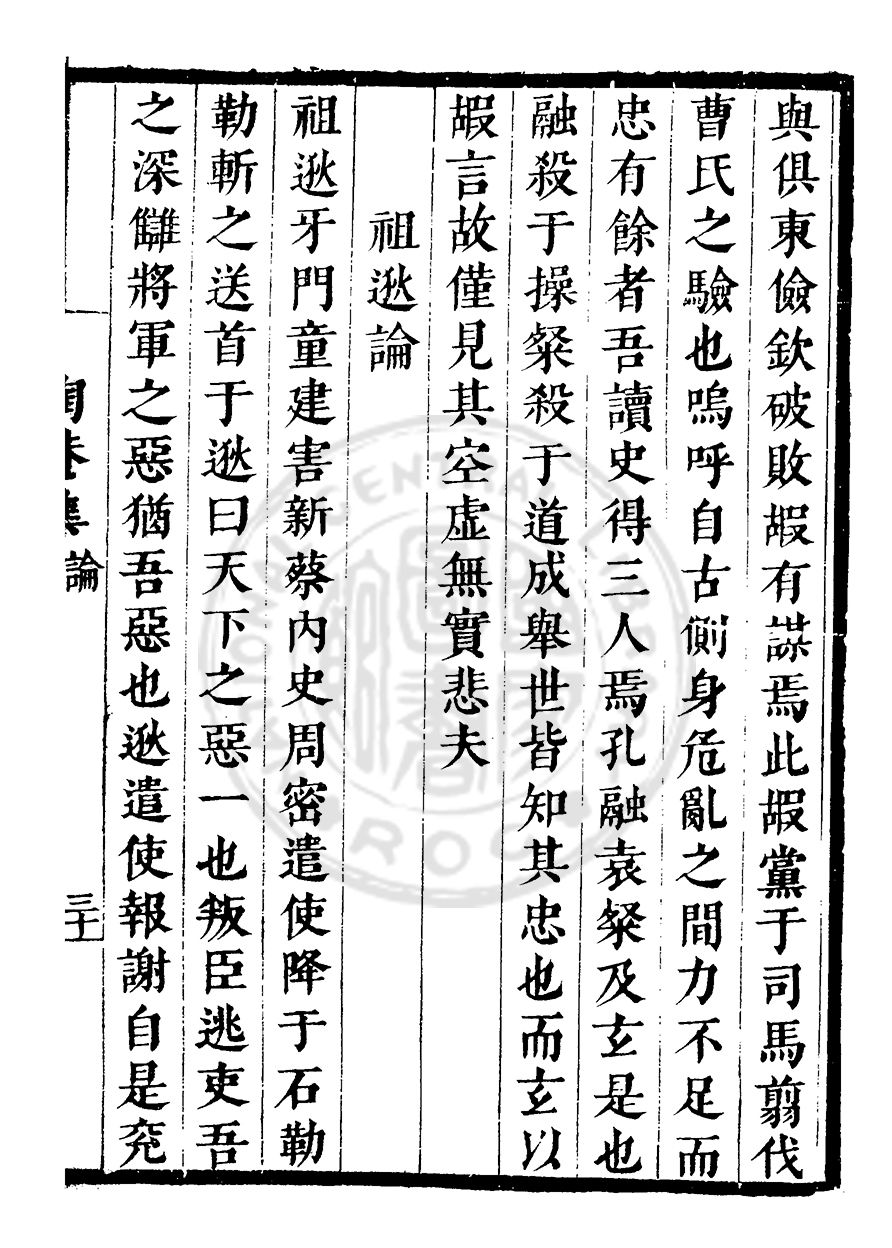 與俱東儉欽破敗嘏有謀焉此嘏黨于司馬翦伐
曹氏之驗也嗚呼自古側身危亂之間力不足而
忠有餘者吾讀史得三人焉孔融袁粲及玄是也
融殺于操粲殺于道成舉世皆知其忠也而玄以
嘏言故僅見其空虛無實悲夫
祖逖論
祖逖牙門童建害新蔡內史周密遣使降于石勒
勒斬之送首于逖曰天下之惡一也叛臣逃吏吾
之深讎將軍之惡猶吾惡也逖遣使報謝自是兗
陶菴集論
三十